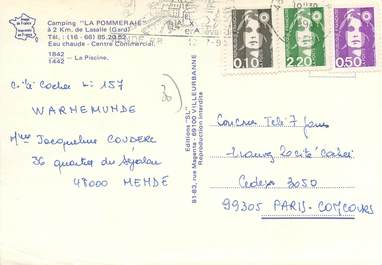 Camping "LA POMMERAIE"
à 2 Km. de Lasalle (Gard)
Tél. : (16 - 66) 85.20.52
Eau chaude - Centre Commercial.
1842
1442 - La Piscine.
0,10
2,20
0,50
3
C. le Cocher Li 157
WARNEMUNDE
Mme Jacqueline COUDERC
36 quartier du
48000 MENDE
Editions "SL"
81-83, rue Magenta - 69100 VILLEURBANNE
Reproduction interdite
Concours Télé 7 Jours
20 cité
Cedex 3050
99305 PARIS-CONCOURS